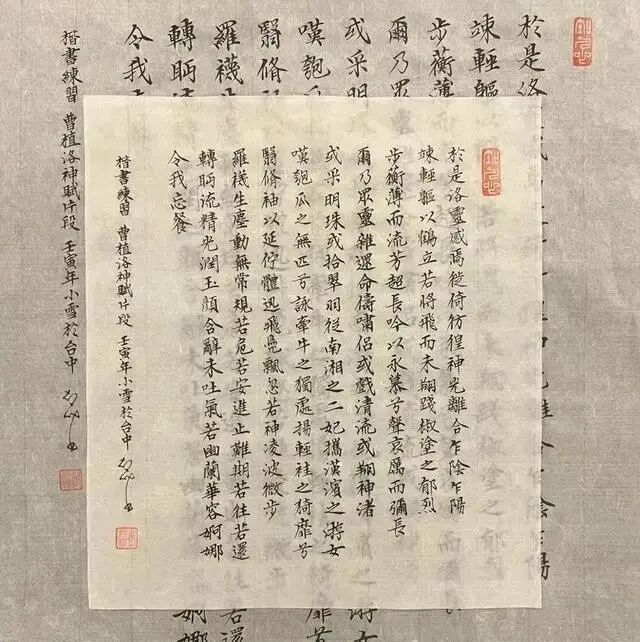 於是洛靈感焉徙倚彷徨神光離合乍陰乍陽
竦輕軀以鶴立若將飛而未翔踐椒塗之郁烈
步蘅薄而流芳超長吟以永慕兮聲哀厲而彌長
爾乃眾靈雜遝命儔嘯侶或戲清流或翔神渚
或采明珠或拾翠羽從南湘之二妃攜漢濱之游女
嘆匏瓜之無匹兮詠牽牛之獨處揚輕袿之猗靡兮
翳脩袖以延佇體迅飛鳧飄忽若神凌波微步
羅襪生塵動無常規若危若安進止難期若往若還
轉眄流精光潤玉顏含辭未吐氣若幽蘭華容婀娜
令我忘餐
楷書練習 曹植洛神賦片段 壬寅年小雪於台中
於是洛
竦輕軀
步蘅薄
爾乃眾
或采明
嘆匏瓜
翳脩袖
羅襪生
轉眄
令我
楷書練習 曹植洛神賦片段 壬寅年小雪於台中